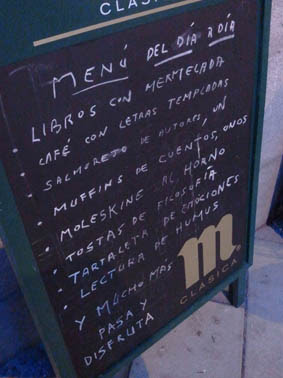 CLASICA
MENÚ DEL DÍA A DÍA
· LIBROS CON MERMELADA
· CAFÉ CON LETRAS TEMPLADAS
· SALMOREJO DE AUTORES, UN
· MUFFINS DE CUENTOS, ONOS
· MOLESKINE AL HORNO
· TOSTAS DE FILOSOFÍA
· TARTALETA DE EMOCIONES
· LECTURA DE HUMUS
Y MUCHO MÁS
PASA Y
DISFRUTA
m
CLASICA